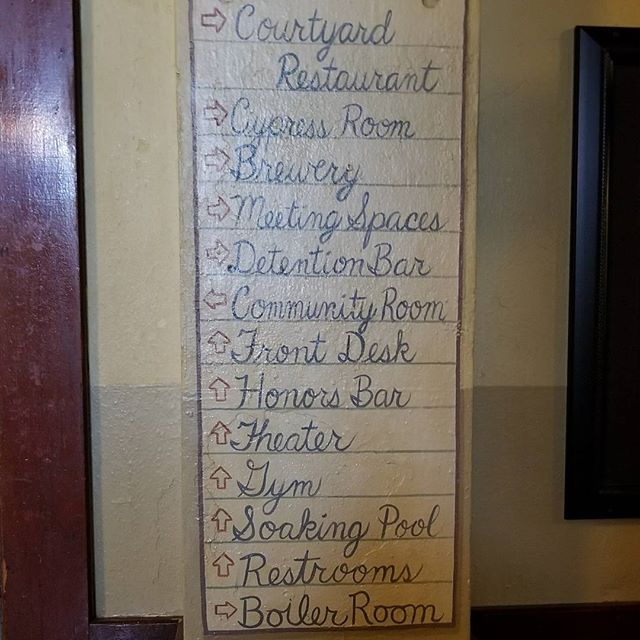 Courtyard
Restaurant
Cypress Room
Brewery
Meeting Spaces
Detention Bar
Community Room
Front Desk
Honors Bar
Theater
Gym
Soaking Pool
Restrooms
Boiler Room